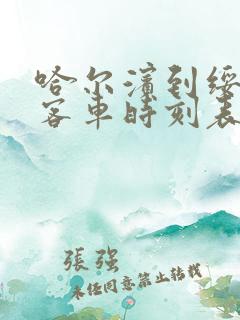 哈尔滨到绥
客车时刻表
張强
未经同意禁止转载